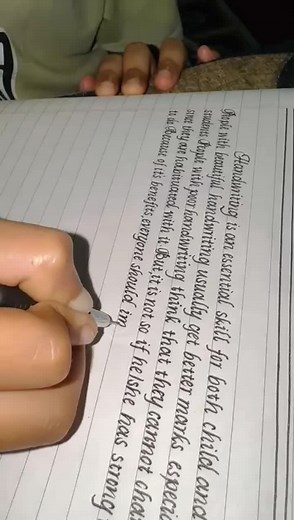 Handwriting is an essential skill for both child and
People with beautiful handwriting usually get better marks especi
students. People with poor handwriting think that they cannot cha
since they are habituated with it. But, it is not so if he/she has strong
to do. Because of its benefits, everyone should im